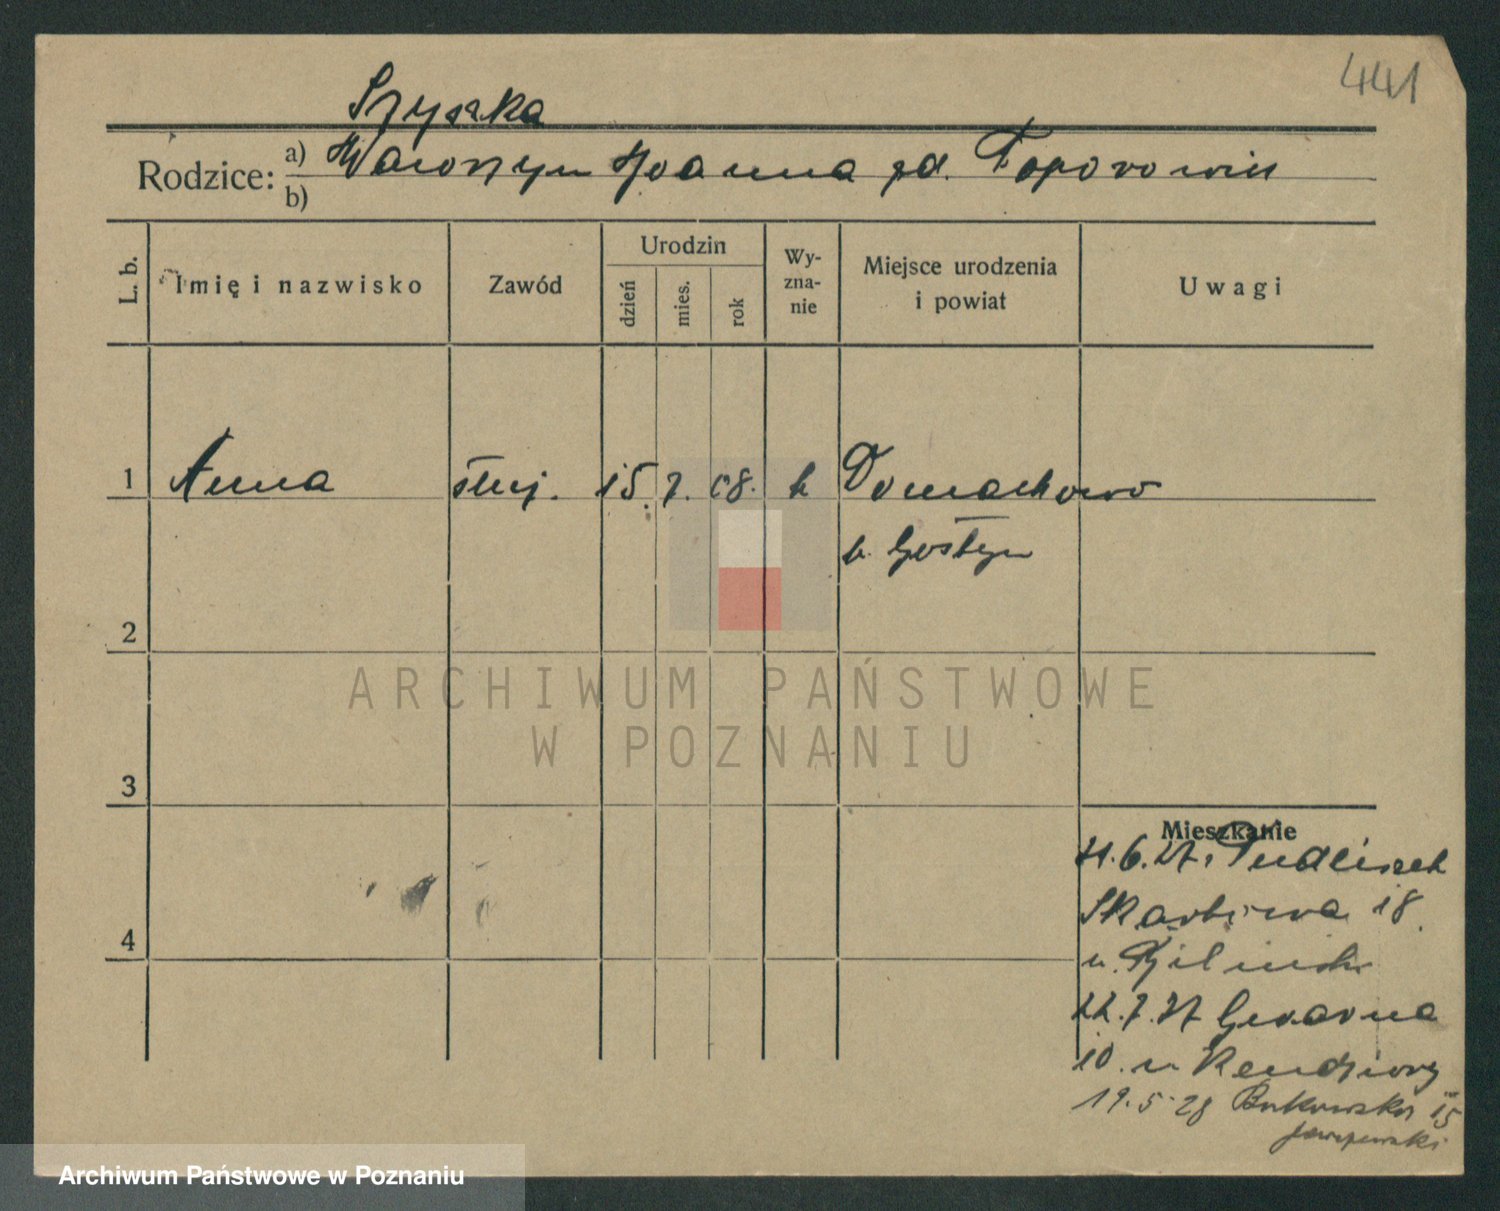 441
Szyszka
Rodzice: a) Wawrzyn Joanna zd. Toporowicz
b)
L. b. Imię i nazwisko Zawód Urodzin dzień mies. rok Wy-zna-nie Miejsce urodzenia i powiat Uwagi
1 Anna służ. 15. 7. 08. k Domachowo
p. Gostyń
2
ARCHIWUM PAŃSTWOWE
W POZNANIU
3
Mieszkanie
21.6.27. Pudliszek
Skarbowa 18
u.
22.7.27
10. u
4
19.5.28 Bukowska 15
Archiwum Państwowe w Poznaniu